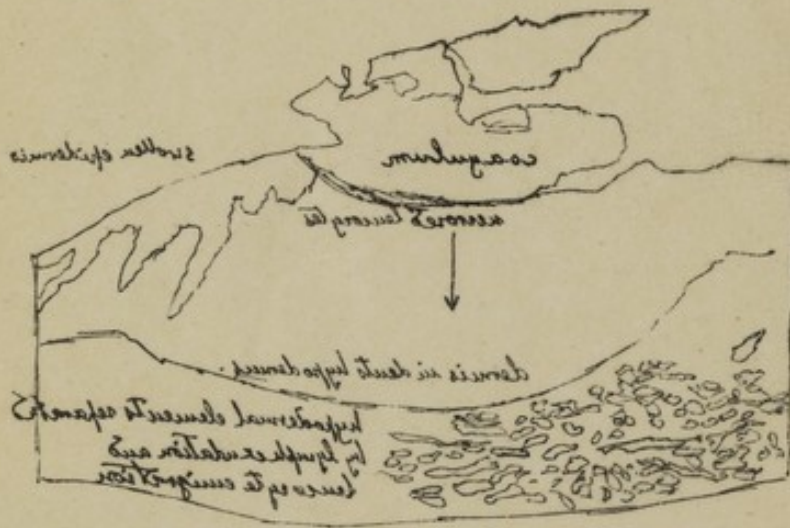 swollen epidermis
coagulum
leucocytes
dermis indents hypodermis.
hypodermal elements separated
by lymph exudation and
leucocyte emigration